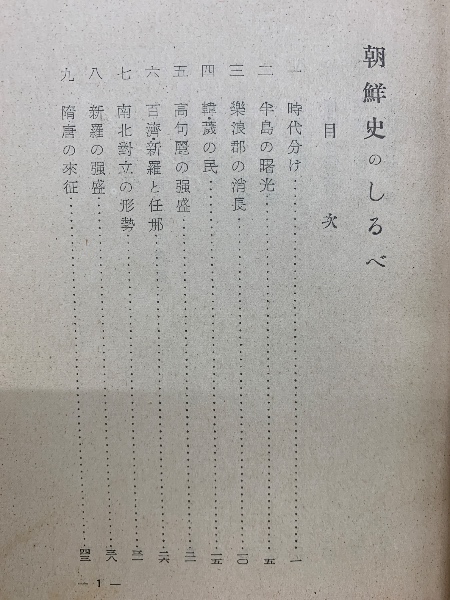 朝鮮史のしるべ
目次
一 時代分け 一
二 半島の曙光 五
三 樂浪郡の消長 一〇
四 韓・濊の民 一五
五 高句麗の强盛 二一
六 百濟・新羅と任那 二六
七 南北對立の形勢 三一
八 新羅の强盛 三八
九 隋唐の來征 四三
— 1 —